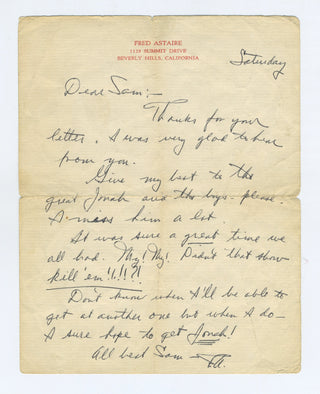 FRED ASTAIRE
1129 SUMMIT DRIVE
BEVERLY HILLS, CALIFORNIA
Saturday
Dear Sam:-
Thanks for your
letter. I was very glad to hear
from you.
Give my best to the
great Jonah and the boys - please.
I miss him a lot.
It was sure a great time we
all had. My! My! Didn't that show
kill 'em!!!!?!
Don't know when I'll be able to
get at another one but when I do -
I sure hope to get Jonah!
All best Sam -
FA.